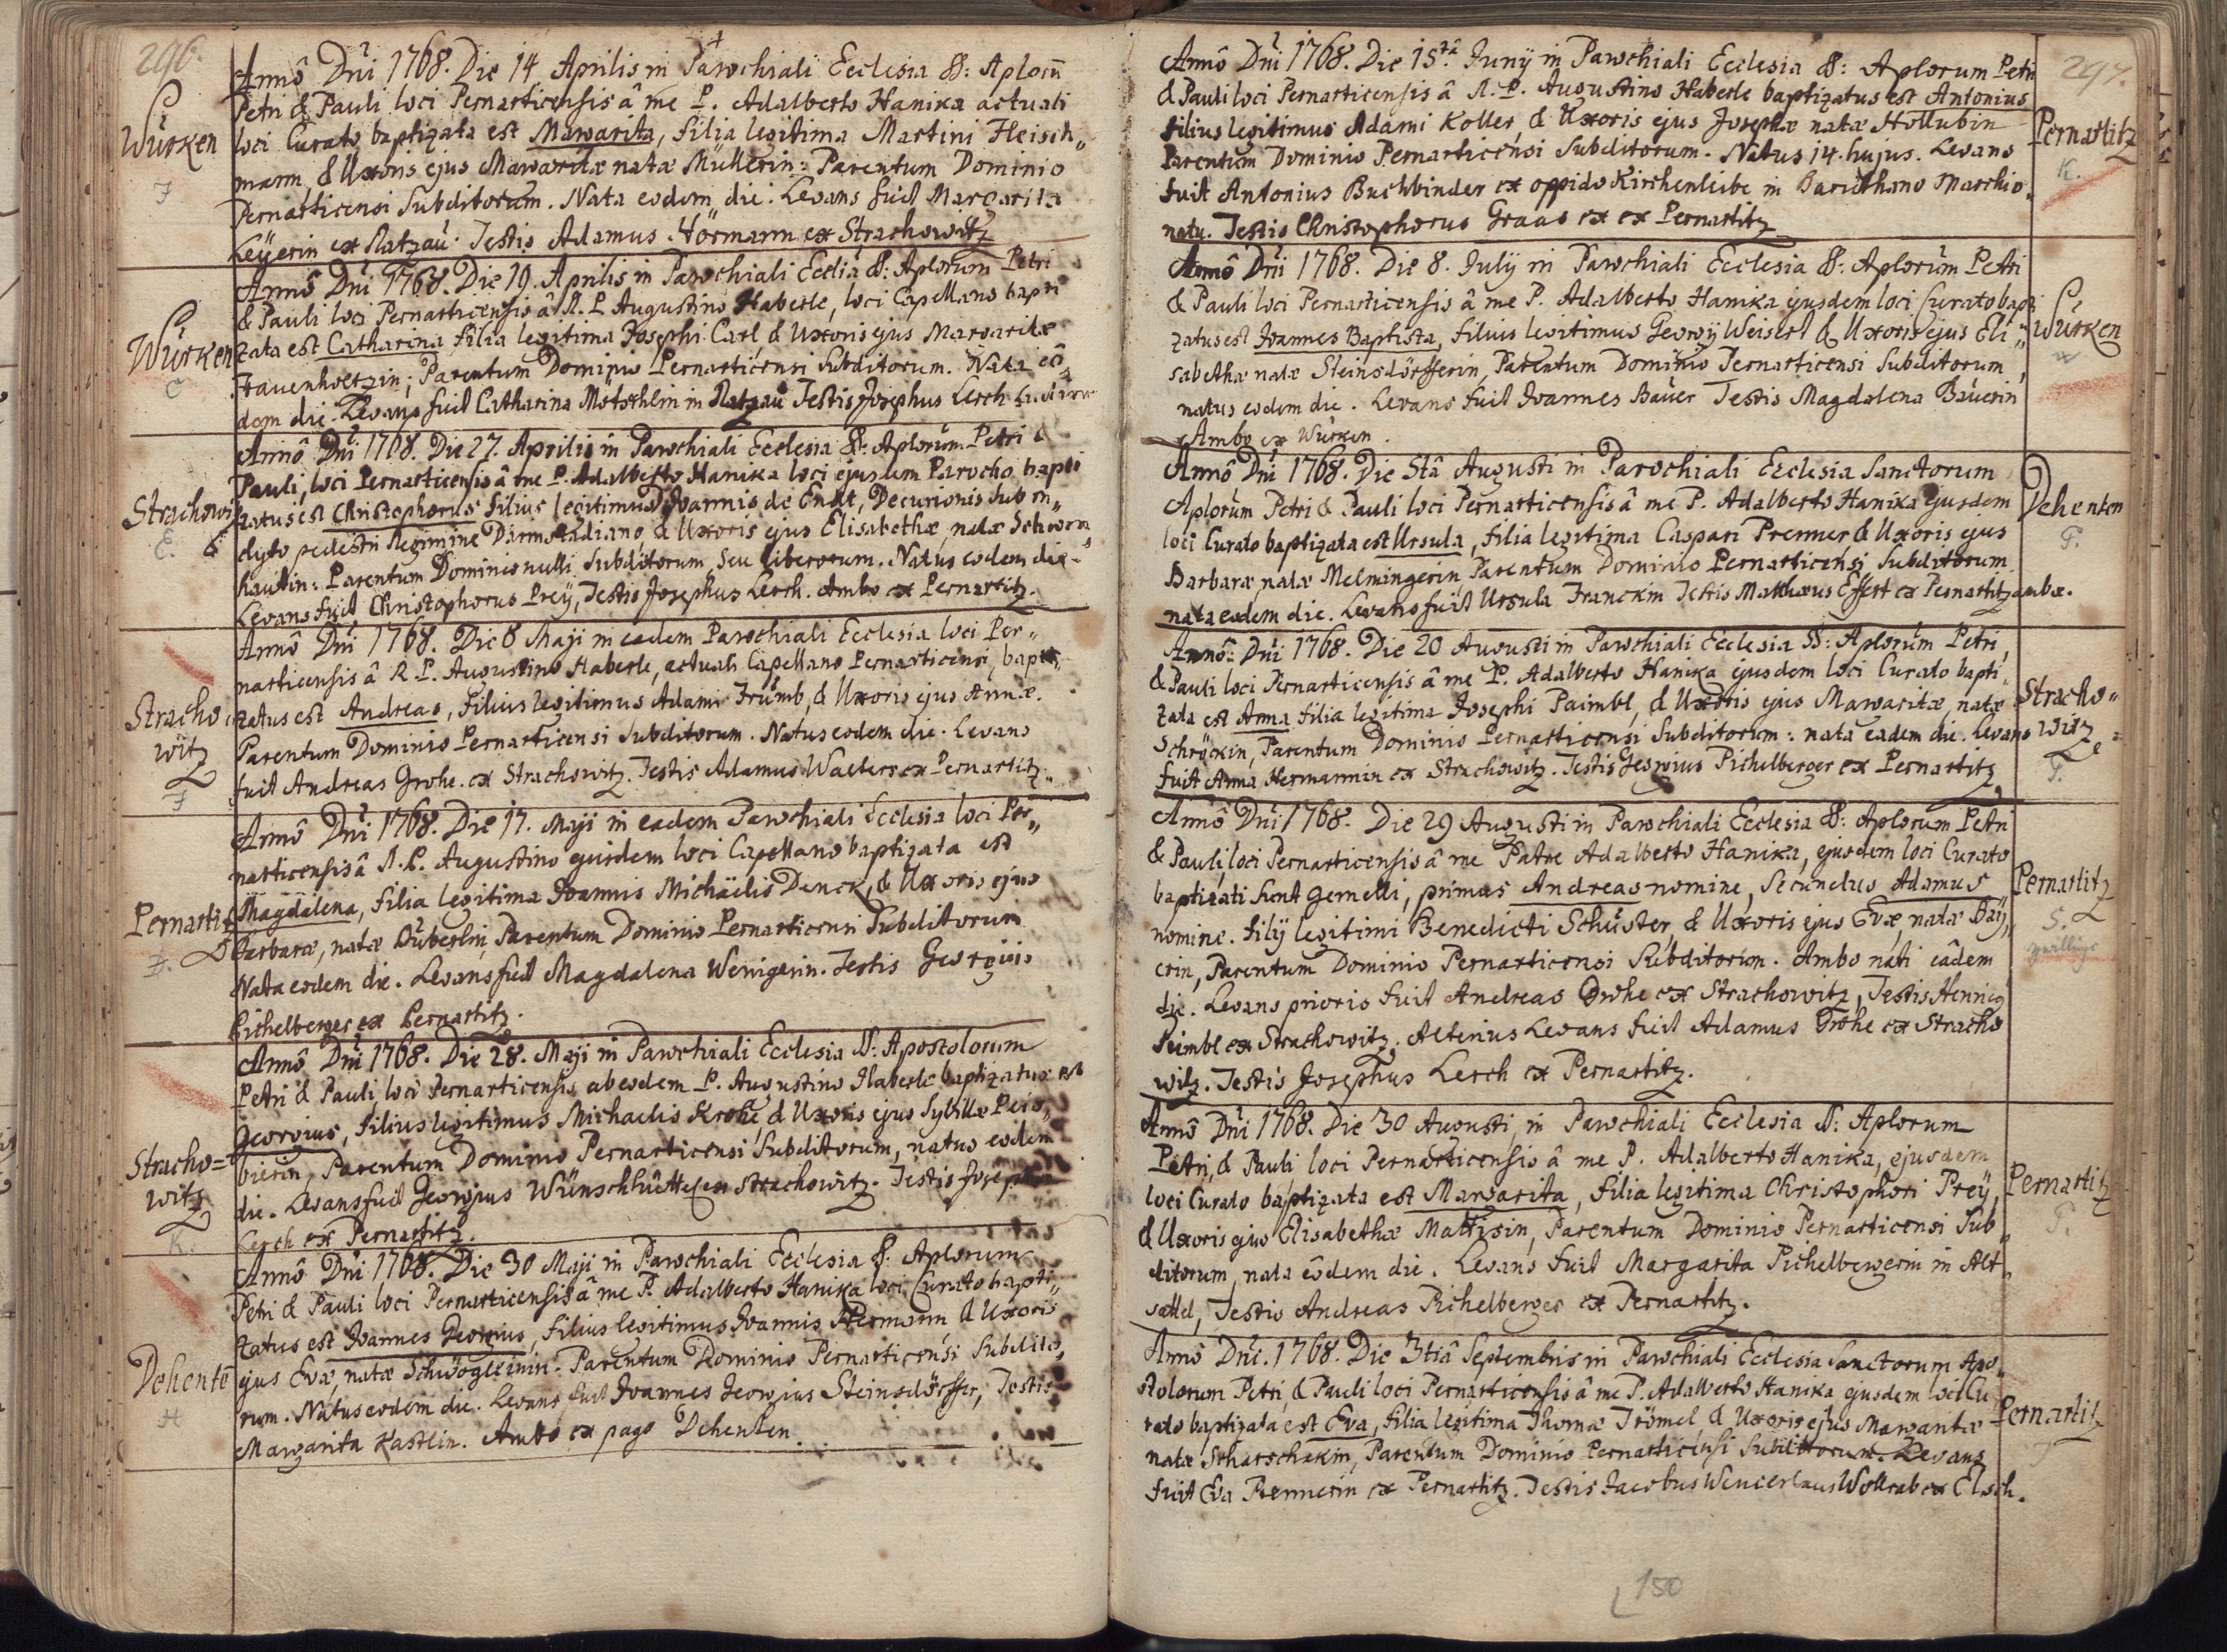 296.
Würken
F
Annô Dni 1768. Die 14 Aprilis in Parochiali Ecclesia SS: Aplorũ
Petri & Pauli loci Pernarticensis â me P. Adalberto Hanika actuali
loci Curato baptizata est Margarita, filia legitima Martini Fleisch„
mann, & Uxoris ejus Margaritæ natæ Müllerin: Parentum Dominio
Pernarticensi Subditorum. Nata eodem die. Levans fuit Margarita
Leÿerin ex Ratzau. Testis Adamus Hörmann ex Strachowitz
Würken
C
Annô Dni 1768. Die 19. Aprilis in Parochiali Ecclia SS: Aplorum Petri
& Pauli loci Pernarticensis â R. P. Augustino Haberle, loci Capellano bapti
zata est Catharina filia legitima Josephi Carl & Uxoris ejus Margaritæ
Frauenholtzin; Parentum Dominio Pernarticensi Subditorum. Nata eô„
dem die. Levans fuit Catharina Motschlin in Ratzau Testis Josephus Lerch
Strachowi
E.
Annô Dni 1768. Die 27. Aprilis in Parochiali Ecclesia SS: Aplorum Petri &
Pauli, loci Pernarticensis â me P. Adalberto Hanika loci ejusdem Parocho bapti
zatus est Christophorus filius legitimus Joannis de Endt, Decurionis sub in„
clyto pedestri Regimine Darmstadiano, & Uxoris ejus Elisabethæ, natæ Schworn„
hautin: Parentum Dominio nulli Subditorum, seu liberorum. Natus eodem die.
Levans fuit Christophorus Preÿ, Testis Josephus Lerch. Ambo ex Pernartitz.
Stracho„
witz
F
Annô Dni 1768. Die 8 Maji in eadem Parochiali Ecclesia loci Per„
narticensis â R. P. Augustino Haberle, actuali Capellano Pernarticensi, bapti„
zatus est Andreas, filius legitimus Adami Frumb, & Uxoris ejus Annæ.
Parentum Dominio Pernarticensi Subditorum. Natus eodem die. Levans
fuit Andreas Grohe. ex Strachowitz. Testis Adamus Walters ex Pernartitz.
Pernartitz
D.
Annô Dni 1768. Die 17. Maji in eadem Parochiali Ecclesia loci Per„
narticensis â R. P. Augustino quidem loci Capellano baptizata est
Magdalena, filia legitima Joannis Michäelis Denck, & Uxoris ejus
Barbaræ, natæ Düberlin, Parentum Dominio Pernarticensi Subditorum
Nata eodem die. Levans fuit Magdalena Wenigerin. Testis Georgius
Pichelberger ex Pernartitz.
Stracho=
witz
K.
Annô Dni 1768. Die 28. Maji in Parochiali Ecclesia SS: Apostolorum
Petri & Pauli, loci Pernarticensis ab eodem P. Augustino Haberle baptizatus est
Georgius, filius legitimus Michaelis Krohe & Uxoris ejus Sybillæ Peis„
bierin, Parentum Dominio Pernarticensi Subditorum, natus eodem
die. Levans fuit Georgius Wünschhütt ex Strachowitz. Testis Josephus
Lerch ex Pernartitz.
Dehentẽ
H
Annô Dni 1768. Die 30 Maji in Parochiali Ecclesia SS: Aplorum
Petri & Pauli loci Pernarticensis â me P. Adalberto Hanika loci Curato bapti„
zatus est Joannes Georgius, filius legitimus Joannis Hermann & Uxoris
ejus Evæ, natæ Schwögleinin. Parentum Dominio Pernarticensi Subdito„
rum. Natus eodem die. Levans fuit Joannes Georgius Steinsdörffer, Testis
Margarita Kastlin. Ambo ex pago Dehenten.
297.
Annô Dni 1768. Die 15tâ Junÿ in Parochiali Ecclesia SS: Aplorum Petri
& Pauli loci Pernarticensis â R. P. Augustino Haberle baptizatus est Antonius
filius legitimus Adami Koller, & Uxoris ejus Josephæ natæ Hollubin
Parentum Dominio Pernarticensi Subditorum. Natus 14. hujus. Levans
fuit Antonius Buchbinder ex oppido Kirchenleibe in Baruthano Marchio„
natu. Testis Christophorus Graas ex ex Pernartitz
Pernartitz
K.
Annô Dni 1768. Die 8. Julÿ in Parochiali Ecclesia SS: Aplorum Petri
& Pauli loci Pernarticensis â me P. Adalberto Hanika ejusdem loci Curato bapti
zatus est Joannes Baptista, filius legitimus Georgÿ Weisert & Uxoris ejus Eli„
sabethæ natæ Steinsdörfferin, Parentum Dominio Pernarticensi Subditorum,
natus eodem die. Levans fuit Joannes Bauer Testis Magdalena Bauerin
Ambo ex Würken.
Würken
W
Annô Dni 1768. Die 8tâ Augusti in Parochiali Ecclesia Sanctorum
Aplorum Petri & Pauli loci Pernarticensis â me P. Adalberto Hanika ejusdem
loci Curato baptizata est Ursula, filia legitima Caspari Premer & Uxoris ejus
Barbaræ, natæ Melmingerin Parentum Dominio Pernarticensi Subditorum
nata eodem die. Levans fuit Ursula Franckin Testis Matthæus Effert ex Pernartitz ambæ.
Dehenten
P.
Annô: Dni 1768. Die 20 Augusti in Parochiali Ecclesia SS: Aplorum Petri,
& Pauli loci Pernarticensis â me P. Adalberto Hanika ejusdem loci Curato bapti„
zata est Anna filia legitima Josephi Paimbl, & Uxoris ejus Margaritæ, natæ
Schröckin, Parentum Dominio Pernarticensi Subditorum: nata eadem die. Levans
fuit Anna Hermannin ex Strachowitz. Testis Georgius Pichelberger ex Pernartitz
Stracho„
witz
P.
Annô Dni 1768. Die 29 Augusti in Parochiali Ecclesia SS: Aplorum Petri
& Pauli, loci Pernarticensis â me Patre Adalberto Hanika, ejusdem loci Curato
baptizati sunt gemelli, primus Andreas nomine, Secundus Adamus
nomine. filÿ legitimi Benedicti Schuster, & Uxoris ejus Evæ, natæ Baÿ„
erin, Parentum Dominio Pernarticensi Subditorum. Ambo nati eâdem
die. Levans prioris fuit Andreas Grohe ex Strachowitz, Testis Henricg
Peimbl ex Strachowitz. Alterius Levans fuit Adamus Grohe ex Stracho
witz. Testis Josephus Lerch ex Pernartitz.
Pernartitz
S.
zwillinge
Annô Dni 1768. Die 30 Augusti, in Parochiali Ecclesia SS: Aplorum
Petri, & Pauli loci Pernarticensis â me P. Adalberto Hanika, ejusdem
loci Curato baptizata est Margarita, filia legitima Christophori Preÿ,
& Uxoris ejus Elisabethæ Mattisin, Parentum Dominio Pernarticensi Sub„
ditorum, nata eôdem die. Levans fuit Margarita Pichelbergerin in Alt„
sattel, Testis Andreas Pichelberger ex Pernartitz.
Pernartitz
P.
Annô Dni. 1768. Die 3tiâ Septembris in Parochiali Ecclesia Sanctorum Apo„
stolorum Petri, & Pauli loci Pernarticensis â me P. Adalberto Hanika ejusdem loci Cu
rato baptizata est Eva, filia legitima Thomæ Trömel & Uxoris ejus Margaritæ
natæ Scharschakin, Parentum Dominio Pernarticensi Subditorum. Levans
fuit Eva Rennerin ex Pernartitz. Testis Jacobus Wenceslaus Wollrab ex Elsch.
Pernartitz
T
150